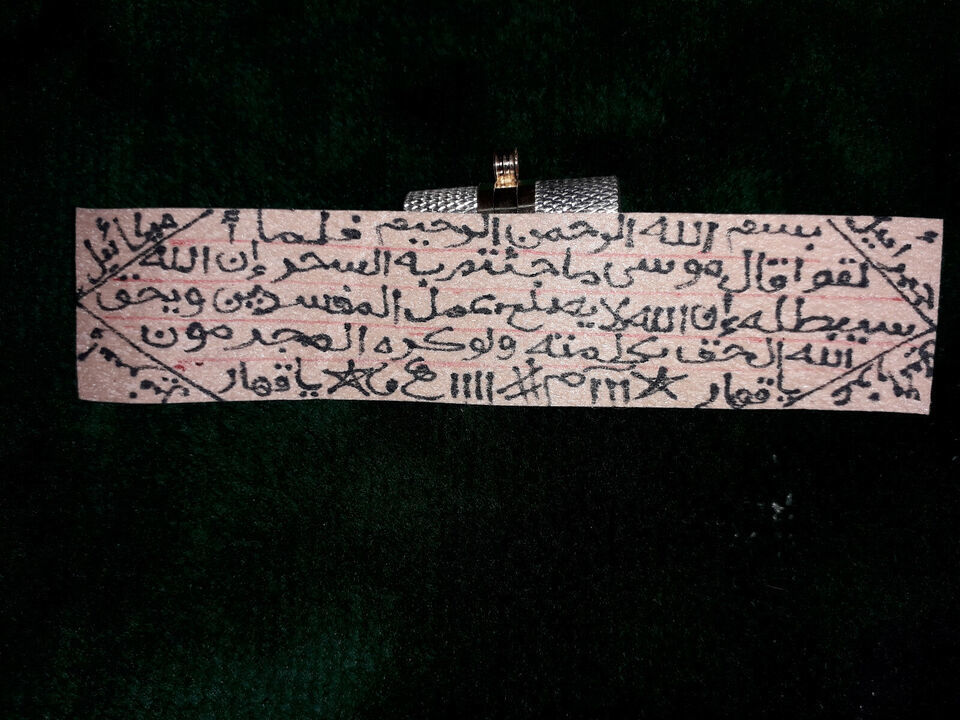 بسم الله الرحمن الرحيم فلما أ
لقوا قال موسى ما جئتم به السحر إن الله
سيبطله إن الله لا يصلح عمل المفسدين ويحق
الله الحق بكلمته ولوكره المجرمون
يا قهار ★ ١١١ م # ١١١١ ه و ★ يا قهار